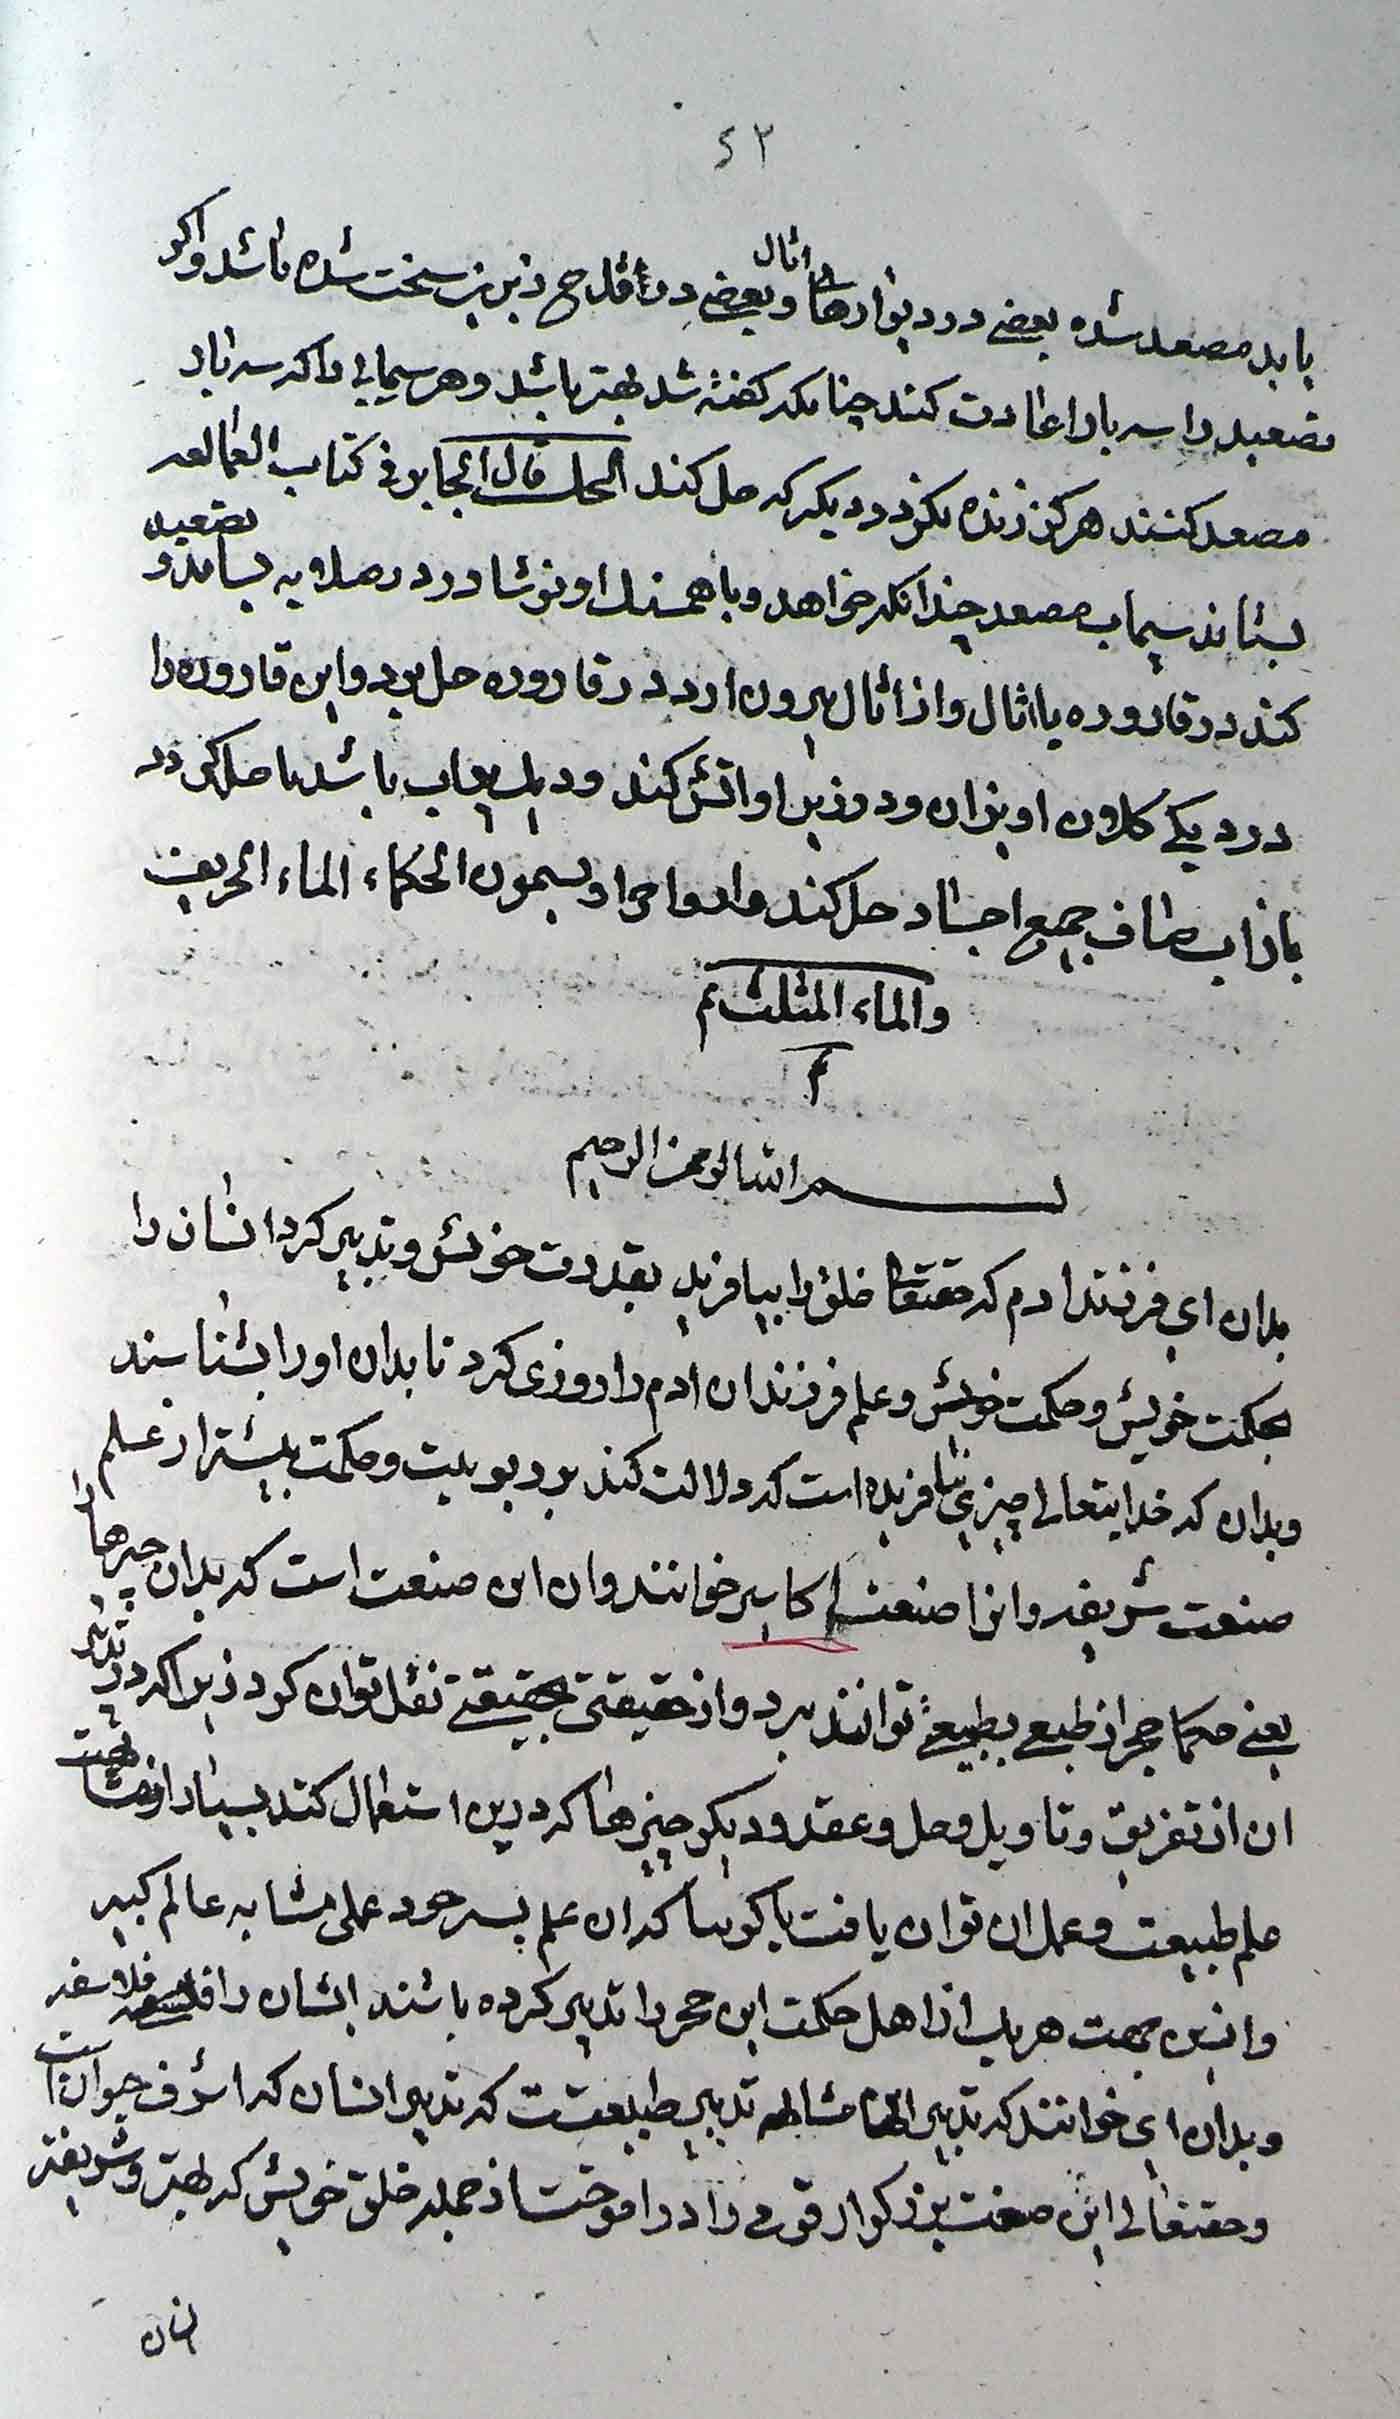 ٤٢
یابد مصعد شده بعضی در دیوارهای اثال و بعضی در اقداح زیرین سخت شده باشد و اکر
تصعید را سه بار اعادت کند چنانکه کفته شد بهتر باشد و هر سیمابی را که سه بار
مصعد کنند هرکز زنده نکردد دیکر که حل کند الحل قال الجابر فی کتاب
بستاند سیماب مصعد چندانکه خواهد و با همسنك او نوشادر در صلایه بساید و تصعید
کند در قاروره یا اثال و از اثال بیرون ارد در قاروره حل برد و این قاروره را
در دیکی کلان اویزان و در زیر او اتش کند و در باشد تا حل کردد
باز اب صاف جمیع اجساد حل کند و ارواح را و یسمون الحکماء الماء الحریف
والماء المثلث تم
م
بسم الله الرحمن الرحیم
بدان ای فرزند ادم که حقتعالی خلق را بیافرید بقدرت خویش و تدبیر کرد انسان را
بحکمت خویش و حکمت خویش و علم فرزندان ادم را روزی کرد تا بدان او را بشناسند
و بدان که خدایتعالی چیزی نیافریده است که دلالت کند بر ربوبیت و حکمت بیشتر از علم
صنعت شریفه و انرا صنعت اکاسیر خوانند و ان این صنعت است که بدان چیزها را
یعنی حکما حجر از طبعی بطبیعتی توانند برد و از حقیقتی بحقیقتی نقل توان کرد زیرا که در تدبیر
ان از تفریق و تاویل و حل و عقد و دیکر چیزها که درین استعمال کنند بسیار از مشابهت
علم طبیعت و عمل ان توان یافت که ان علم بسر خود عملی مشابه عالم کبیر
و ازین جهت هر یك از اهل حکمت این حجر را تدبیر کرده باشند ایشان را فلاسفه
و بدان ای خوانند که تدبیر انها مشابه تدبیر طبیعتست که تدبیر انسان که اشرف حیوان است
و حقتعالی این صنعت بزرکوار قومی را دراموخت از جمله خلق خویش که بهتر و شریفتر